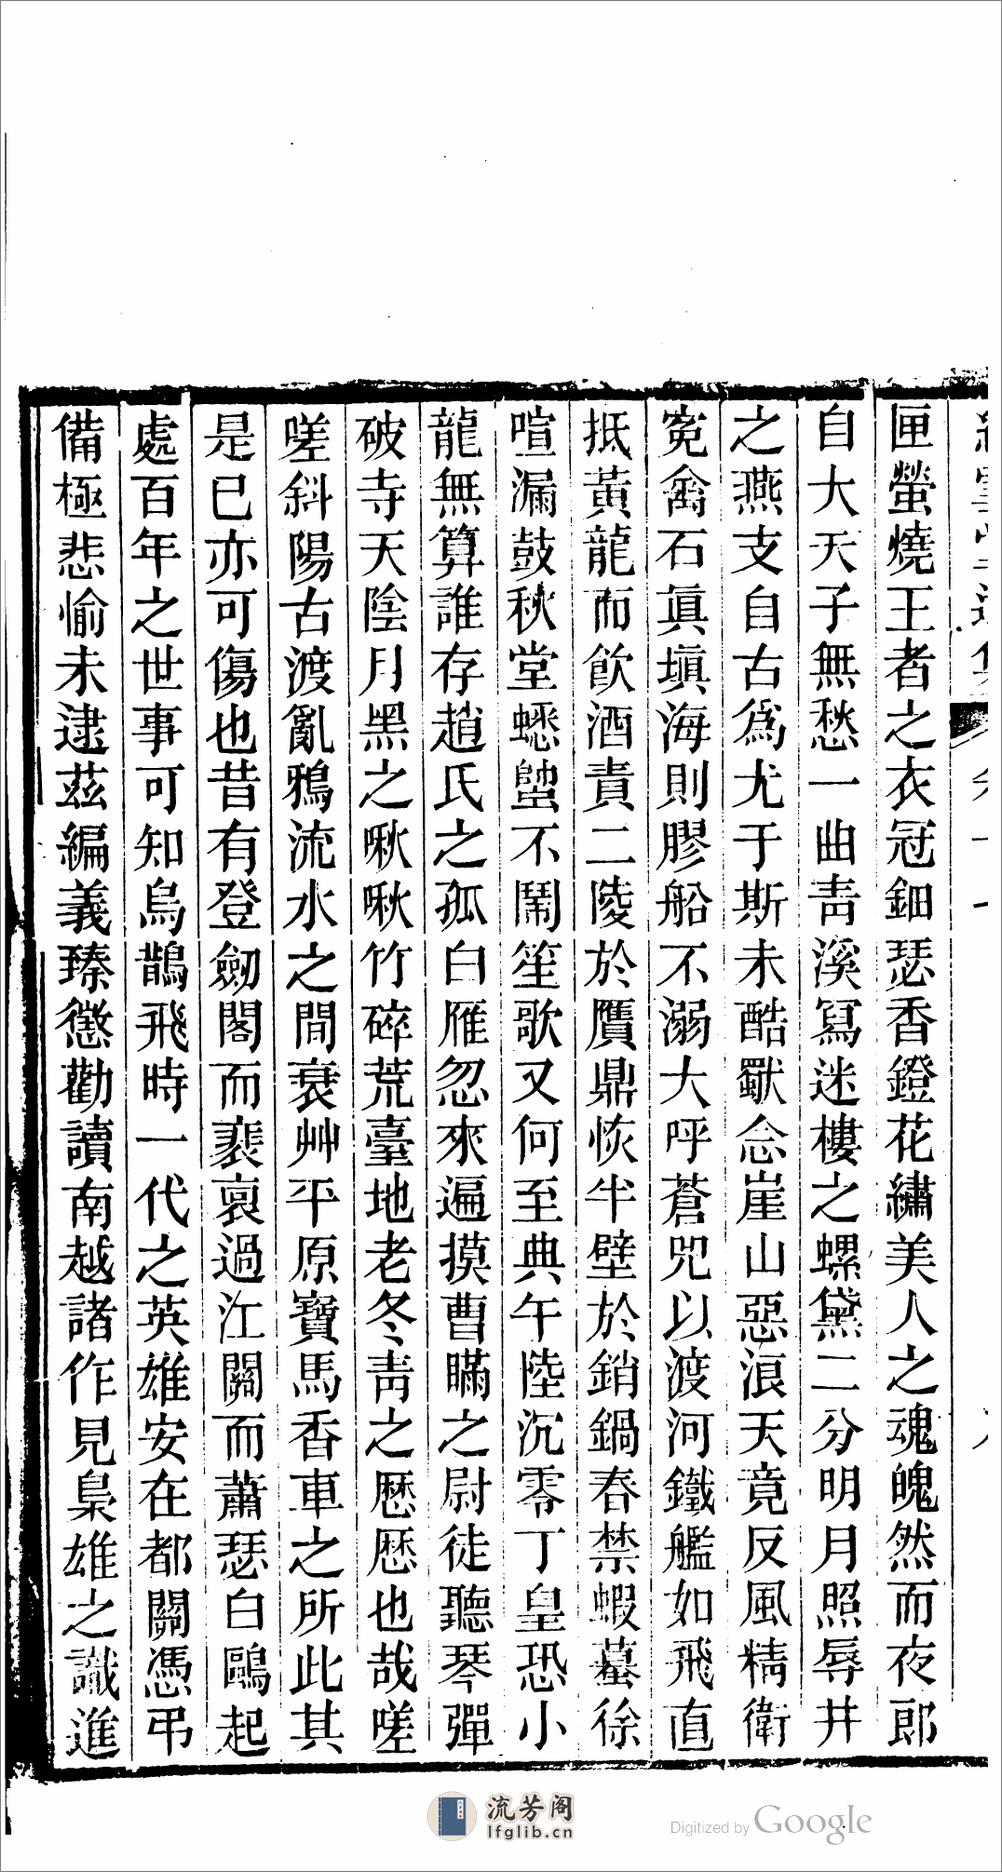 匣螢燒王者之衣冠鈿瑟香鐙花繡美人之魂魄然而夜郎
自大天子無愁一曲靑溪冩迷樓之螺黛二分明月照辱井
之燕支自古爲尤于斯未酷獸念崖山惡浪天竟反風精衛
寃禽石眞塡海則膠船不溺大呼蒼兕以渡河鐵艦如飛直
抵黃龍而飮酒責二陵於贋鼎恢半壁於銷鍋春禁蝦蟇徐
喧漏鼓秋堂蟋蟀不鬧笙歌又何至典午陸沉零丁皇恐小
龍無算誰存趙氏之孤白雁忽來遍摸曹瞞之尉徒聽琴彈
破寺天陰月黑之啾啾竹碎荒臺地老冬靑之歷歷也哉嗟
嗟斜陽古渡亂鴉流水之間衰艸平原寶馬香車之所此其
是已亦可傷也昔有登劒閣而裴哀過江關而蕭瑟白鷗起
處百年之世事可知烏鵲飛時一代之英雄安在都關憑弔
備極悲愉未逮茲編義臻懲勸讀南越諸作見梟雄之識進
流芳阁
lfglib.cn
Digitized by Google